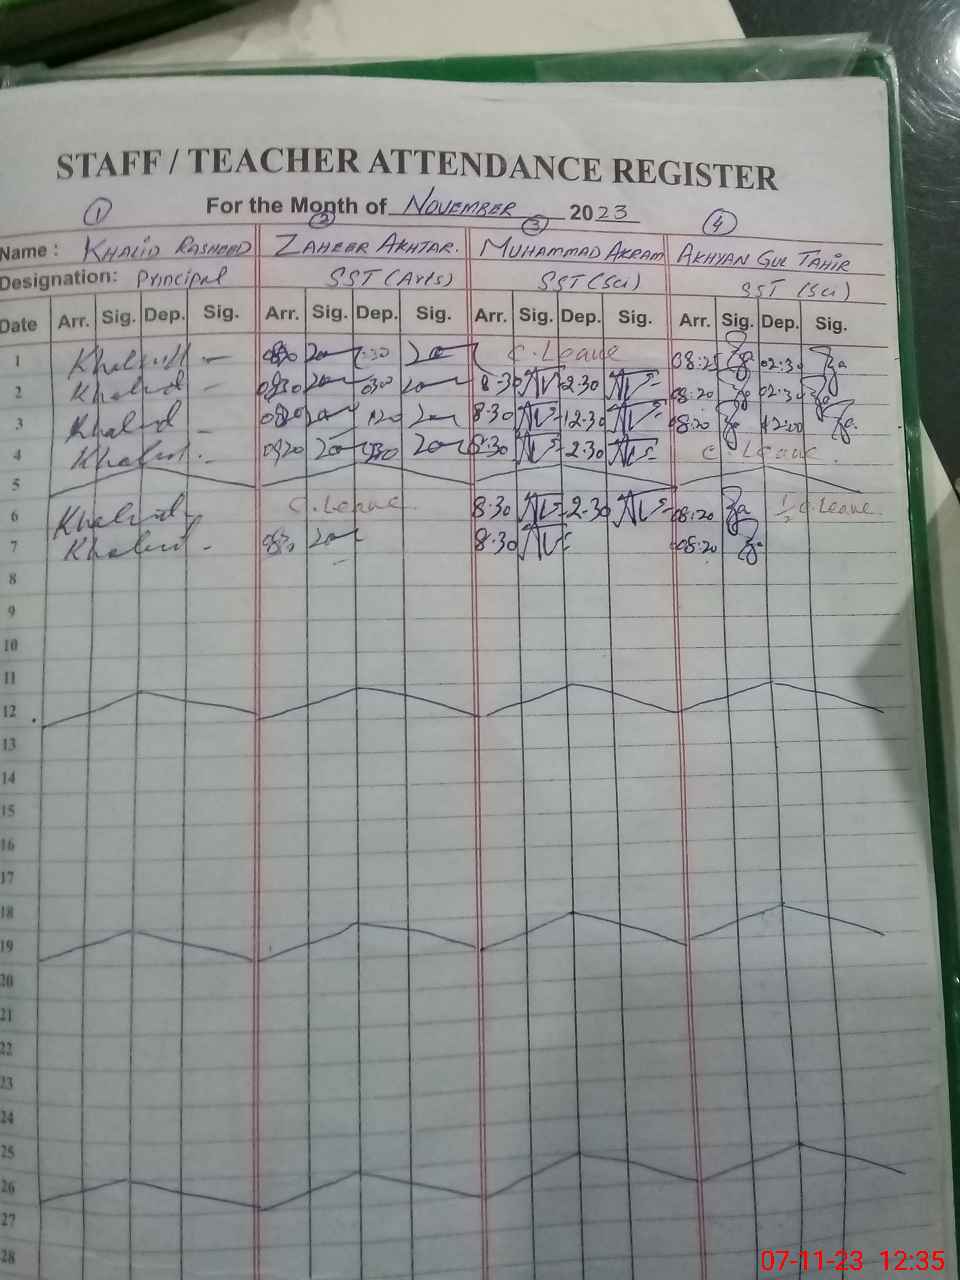 STAFF / TEACHER ATTENDANCE REGISTER
For the Month of NOVEMBER 2023
1 2 3 4
Name : KHALID RASHEED ZAHEER AKHTAR. MUHAMMAD AKRAM AKHYAN GUL TAHIR
Designation: Principal SST (Arts) SST (Sci) SST (Sci)
Date Arr. Sig. Dep. Sig. Arr. Sig. Dep. Sig. Arr. Sig. Dep. Sig. Arr. Sig. Dep. Sig.
1 0830 C. Leave 08:25 02:30
2 Khalid 0830 0230 8-30 2.30 08:20 02:30
3 Khalid 0820 1220 8.30 12.30 08:20 12:00
4 Khalid 0820 8.30 2.30 C. Leave.
5
6 Khalid C. Leave 8.30 2.30 08:20 1/2 C. Leave.
7 Khalid 8.30 08:20
8
9
10
11
12
13
14
15
16
17
18
19
20
21
22
23
24
25
26
27
28
07-11-23 12:35